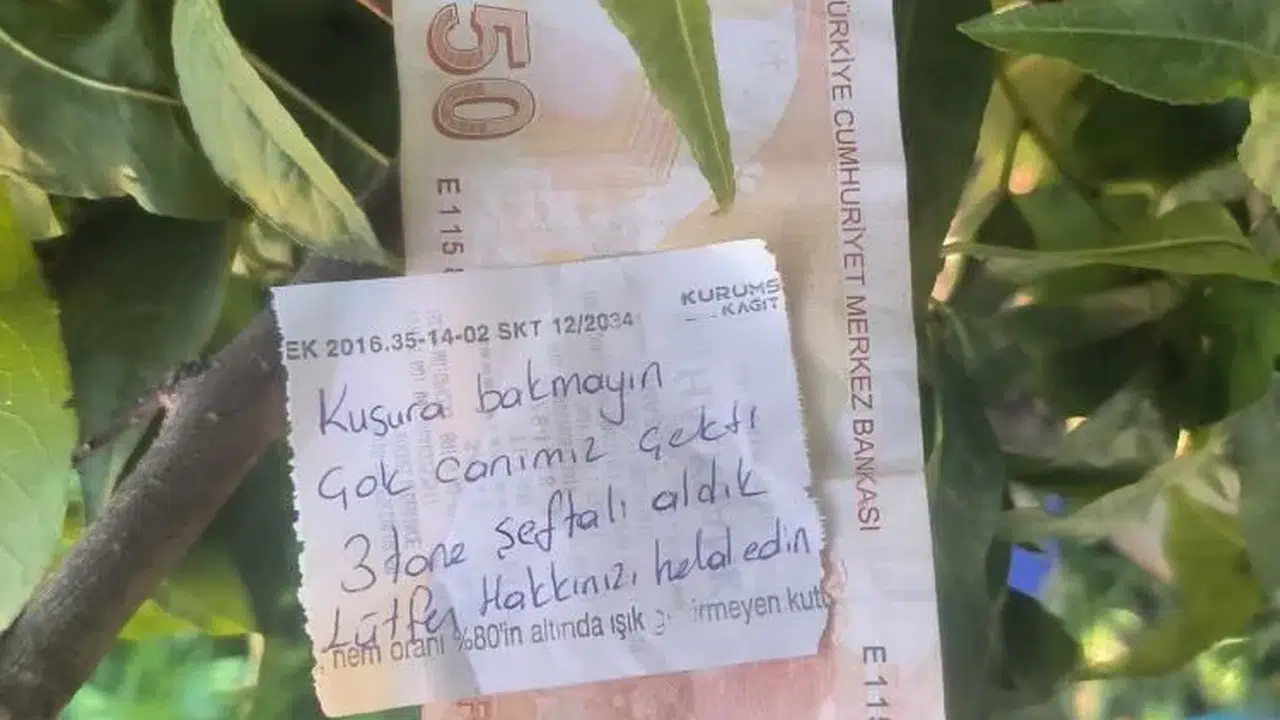 50
E 115
TÜRKİYE CUMHURİYET MERKEZ BANKASI
E 115
KURUMS
KAGIT
EK 2016.35-14-02 SKT 12/2034
Kusura bakmayın
Çok canımız çekti
3 tane şeftali aldık
Lütfen Hakkınızı helal edin
nem oranı %80'in altında ışık